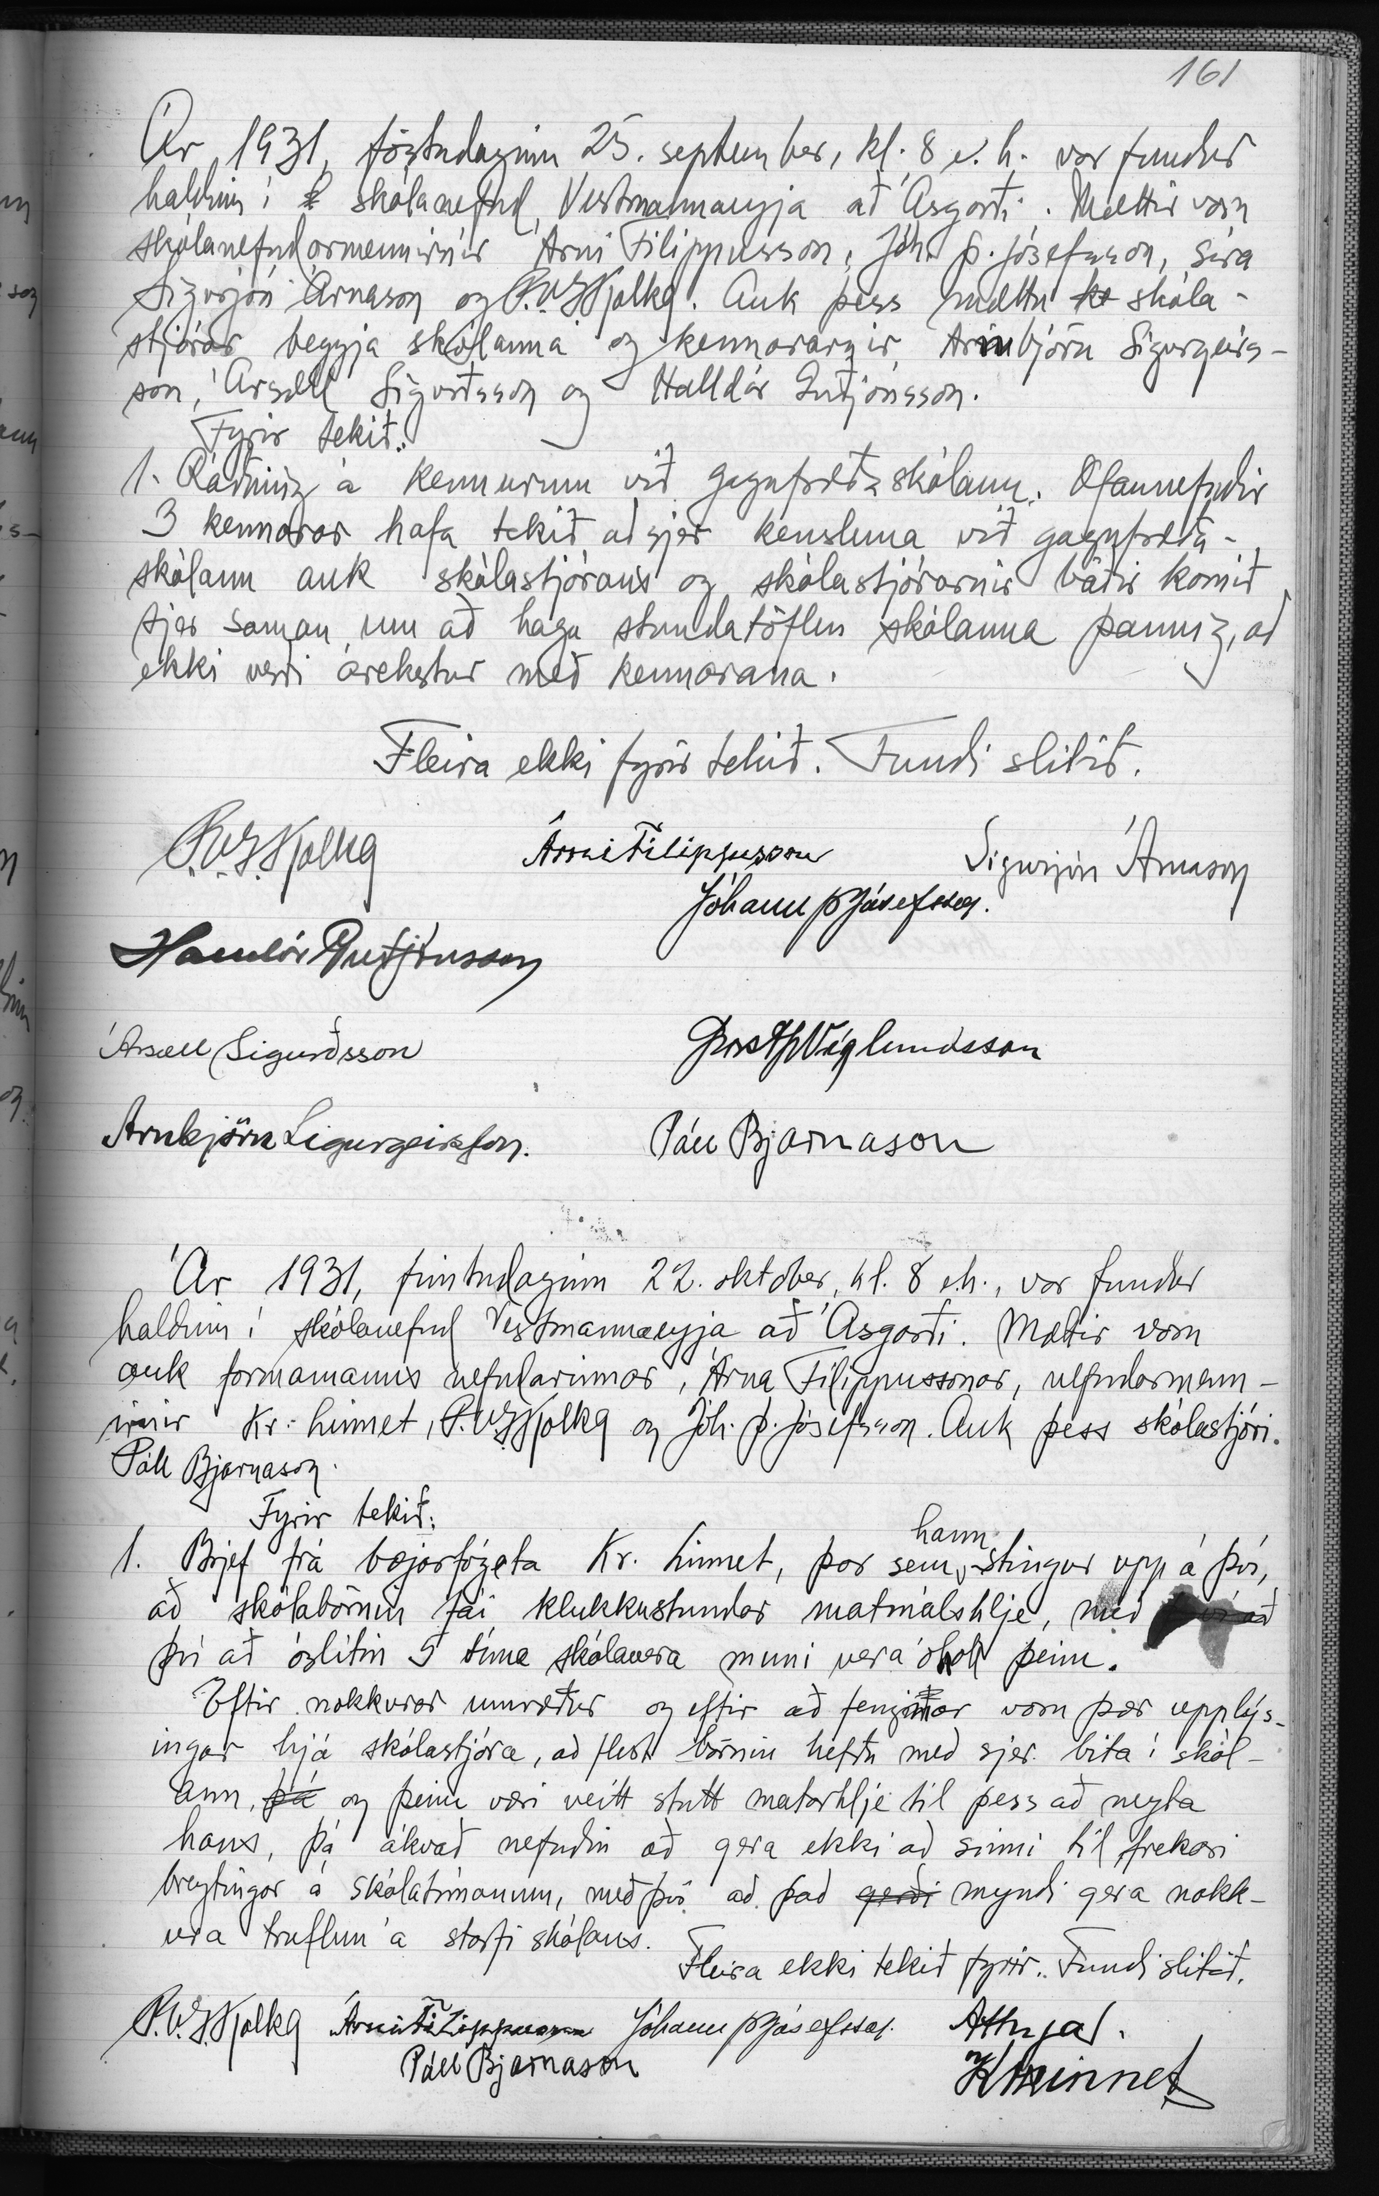 161
Ár 1931, föstudaginn 25. september, kl. 8 e.h. var fundur
haldinn í skólanefnd Vestmannaeyja að Ásgarði. Mættir voru
skólanefndarmennirnir Árni Filippusson, Jóh. Þ. Jósefsson, síra
Sigurjón Árnason og P.V.G. Kolka. Auk þess mættu skóla-
stjórar beggja skólanna og kennararnir Arnbjörn Sigurgeirs-
son, Ársæll Sigurðsson og Halldór Guðjónsson.
Fyrir tekið:
1. Ráðning á kennurum við gagnfræðaskólann. Ofannefndir
3 kennarar hafa tekið að sjer kensluna við gagnfræða-
skólann auk skólastjórans og skólastjórarnir báðir komið
sjer saman um að haga stundatöflum skólanna þannig, að
ekki verði árekstur með kennarana.
Fleira ekki fyrir tekið. Fundi slitið.
P.V.G. Kolka Árni Filippusson Sigurjón Árnason
Jóhann Þ Jósefsson.
Halldór Guðjónsson
Ársæll Sigurðsson Þorst Þ Víglundsson
Arnbjörn Sigurgeirsson. Páll Bjarnason
Ár 1931, fimtudaginn 22. oktober, kl. 8 e.h., var fundur
haldinn í skólanefnd Vestmannaeyja að Ásgarði. Mættir voru
auk formannsins nefndarinnar, Árna Filippussonar, nefndarmenn-
irnir Kr. Linnet, P.V.G. Kolka og Jóh. Þ. Jósefsson. Auk þess skólastjóri
Páll Bjarnason.
Fyrir tekið:
1. Brjef frá bæjarfógeta Kr. Linnet, þar sem hann stingur upp á því,
að skólabörnin fái klukkustundar matmálshlje, með því að
því að óslitin 5 tíma skólavera muni vera óholl þeim.
Eftir nokkurar umræður og eftir að fengnar voru þær upplýs-
ingar hjá skólastjóra, að flest börnin hefðu með sjer bita í skól-
ann, þá og þeim væri veitt stutt matarhlje til þess að neyta
hans, þá ákvað nefndin að gera ekki að sinni til frekari
breytingar á skólatímanum, með því að það gerði myndi gera nokk-
ura truflun á starfi skólans.
Fleira ekki tekið fyrir. Fundi slitið.
P.V.G. Kolka Árni Filippusson Jóhann Þ Jósefsson. Athugað.
Páll Bjarnason Kr Linnet